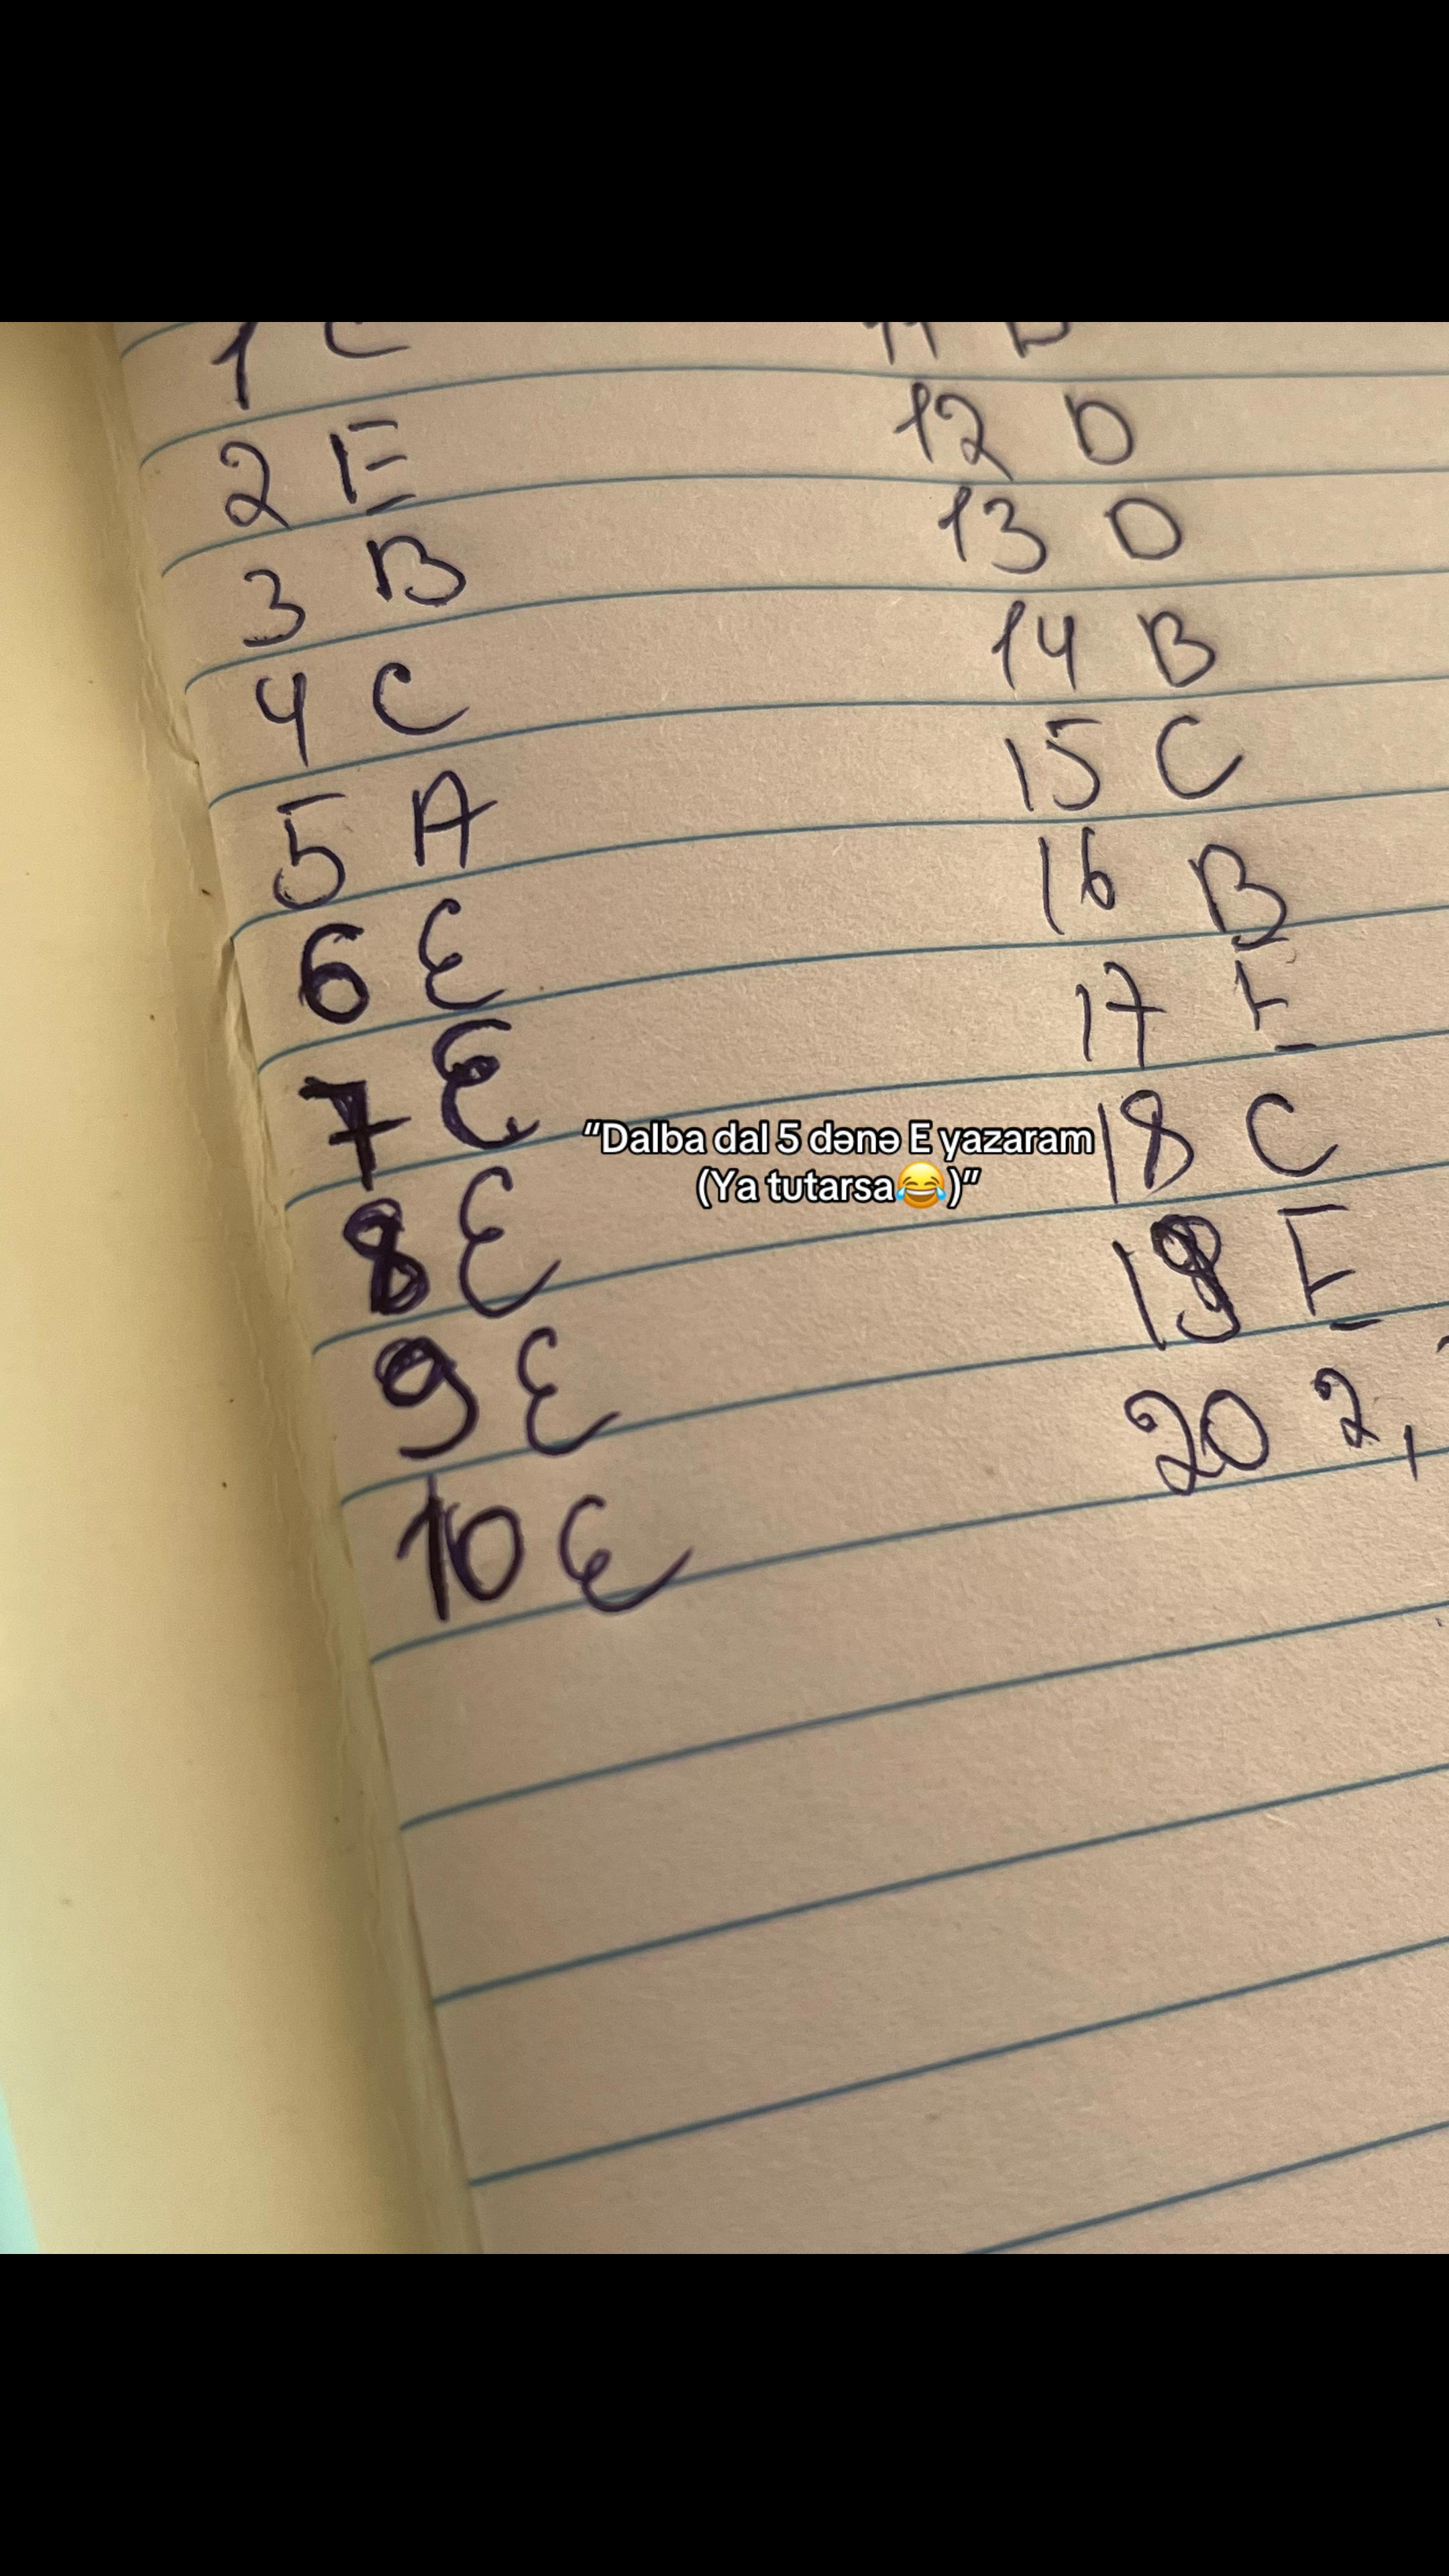 1 C
2 E
3 B
4 C
5 A
6 E
7 E
8 E
9 E
10 E
"Dalba dal 5 dənə E yazaram
(Ya tutarsa😂)"
12 D
13 D
14 B
15 C
16 B
17 E
18 C
19 E
20 2,